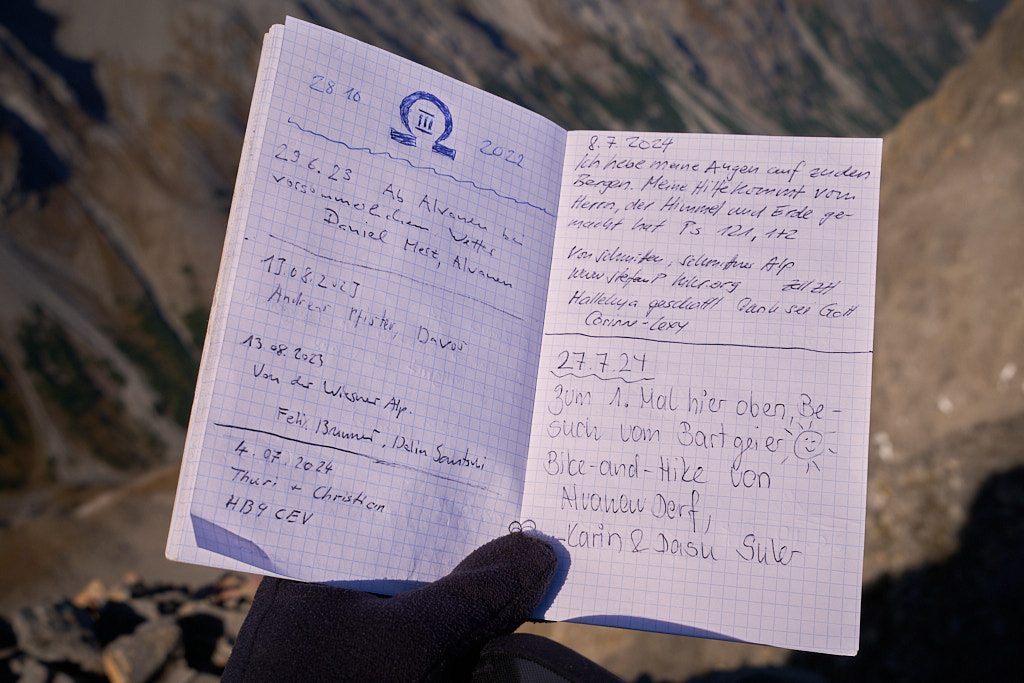 28 10
2022
29.6.23 Ab Alvaneu bei
vorsommerlichem Wetter
Daniel Mest, Alvaneu
13.08.2023
Andreas Pfister, Davos
13.08.2023
Von der Wiesner Alp.
Felix Brunner,
4.07.2024
Thuri + Christian
HB9 CEV
8.7.2024
Ich hebe meine Augen auf zu den
Bergen. Meine Hilfe kommt vom
Herrn, der Himmel und Erde ge-
macht hat Ps 121, 1+2
Von Schmitten, Schmittner Alp
Halleluja geschafft Dank sei Gott
27.7.24
Zum 1. Mal hier oben, Be-
such vom Bartgeier
Bike-and-Hike von
Alvaneu Dorf,
Karin & Suter